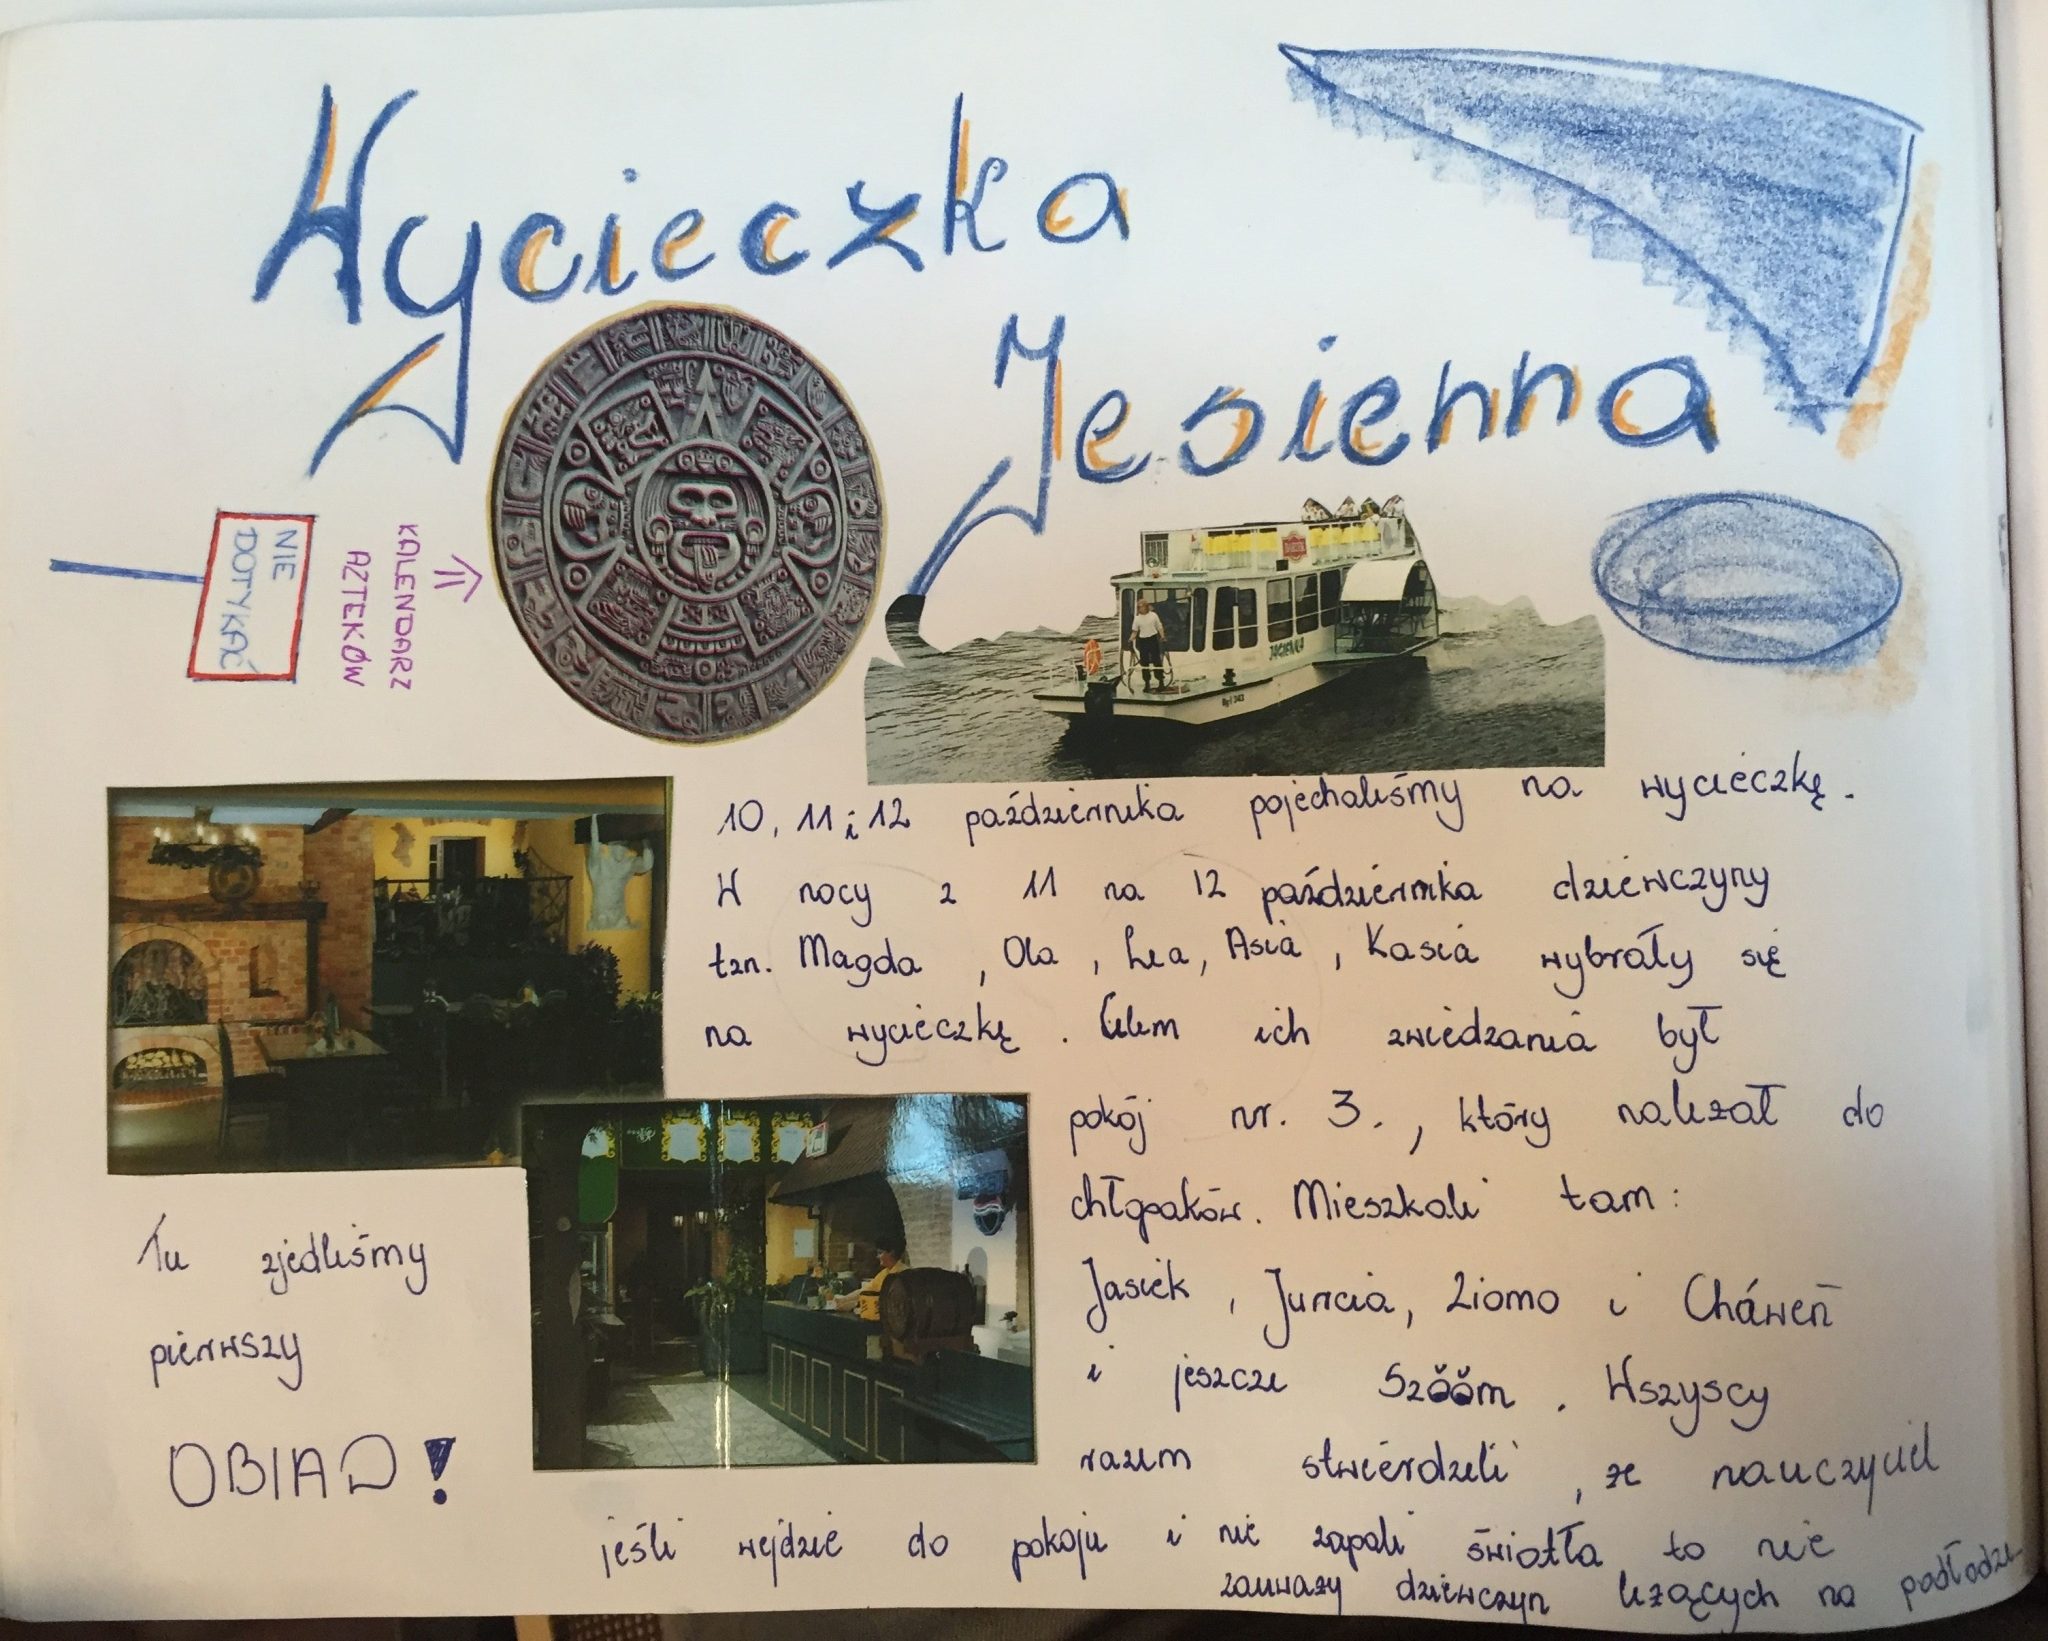 Wycieczka
Jesienna
NIE
DOTYKAĆ
KALENDARZ
AZTEKÓW
JAGIENKA
10, 11 i 12 października pojechaliśmy na wycieczkę.
W nocy z 11 na 12 października dziewczyny
tzn. Magda, Ola, Lea, Asia, Kasia wybrały się
na wycieczkę. Celem ich zwiedzania był
pokój nr. 3., który należał do
chłopaków. Mieszkali tam:
Jasiek, Juncia, Ziomo i Cháweń
i jeszcze Szŏŏm. Wszyscy
razem stwierdzili, że nauczyciel
jeśli wejdzie do pokoju i nie zapali światła to nie
zauważy dziewczyn leżących na podłodze
Tu zjedliśmy
pierwszy
OBIAD!